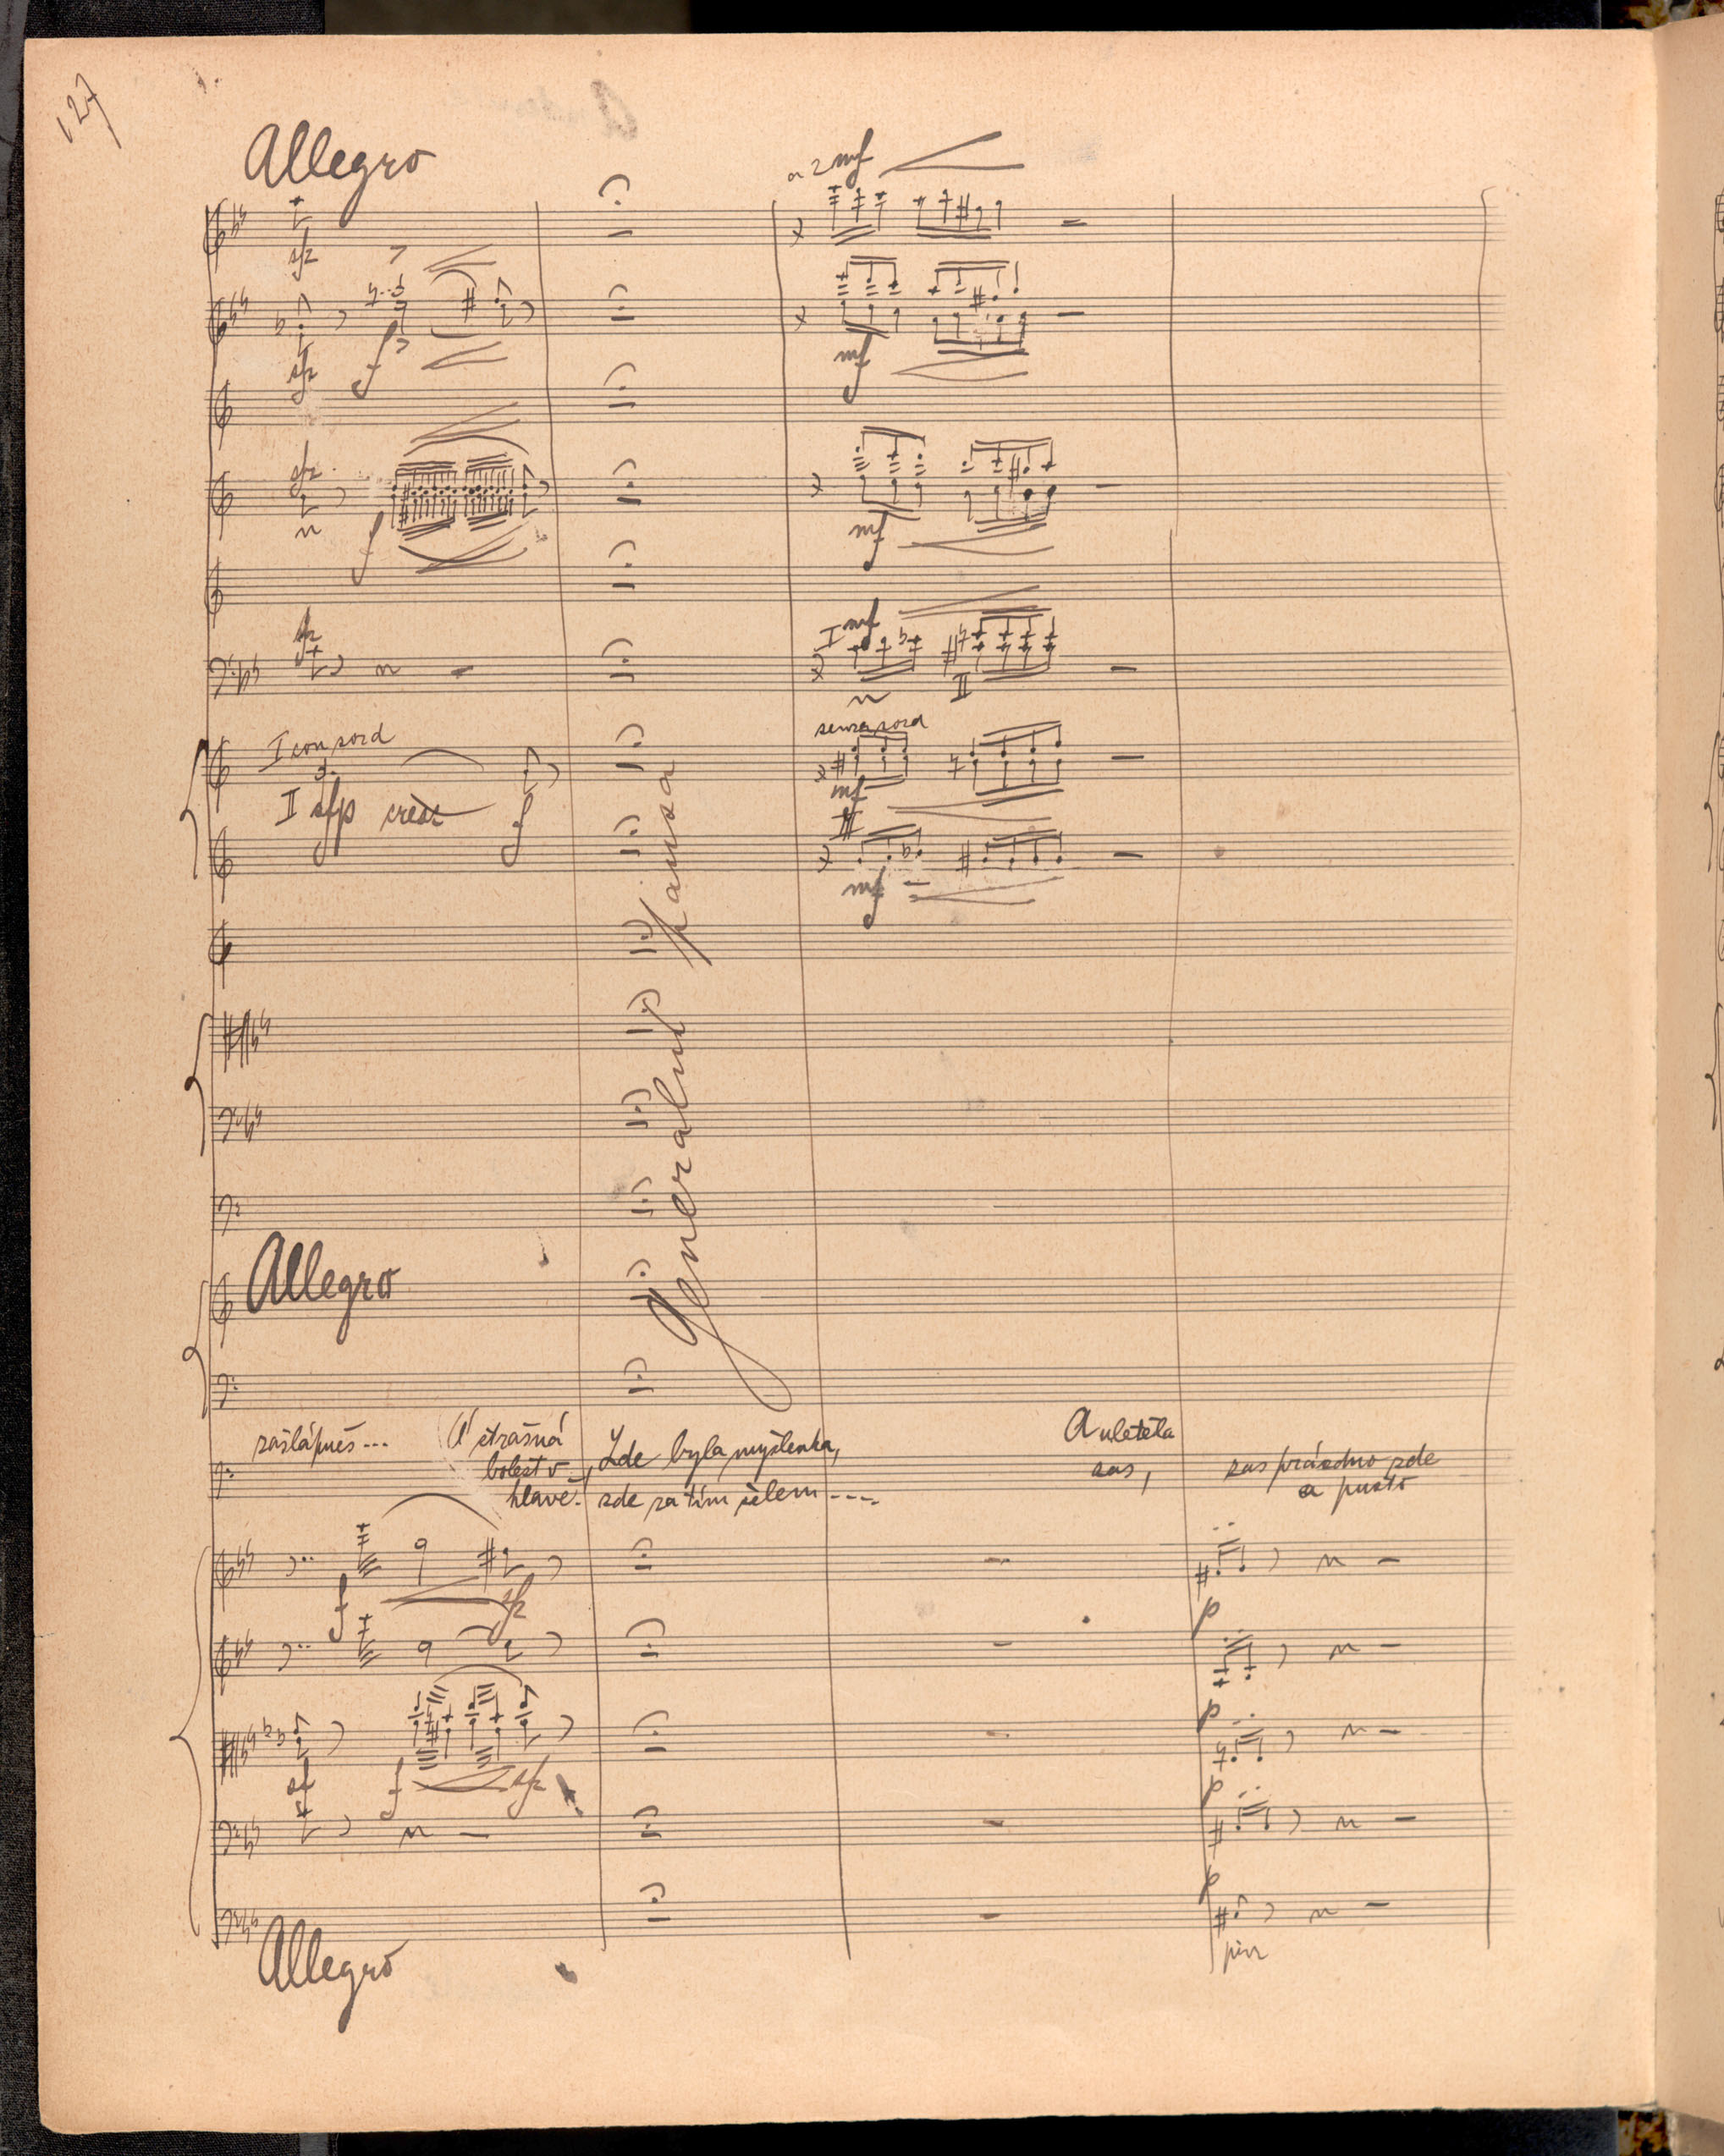 127
Allegro
a 2 mf
sfz
sfz
f
mf
sfz
f
mf
sfz
I mf
II
I con sord
senza sord
II sfp cresc
f
mf
III
mf
Generalní pausa
Allegro
zašlápneš...
A strašná
bolest v
hlavě.
Zde byla myšlenka,
zde za tím čelem ----
A uletěla
zas,
zas prázdno zde
a pusto
f
sfz
p
p
sf
f
sfz
p
p
pizz
Allegro